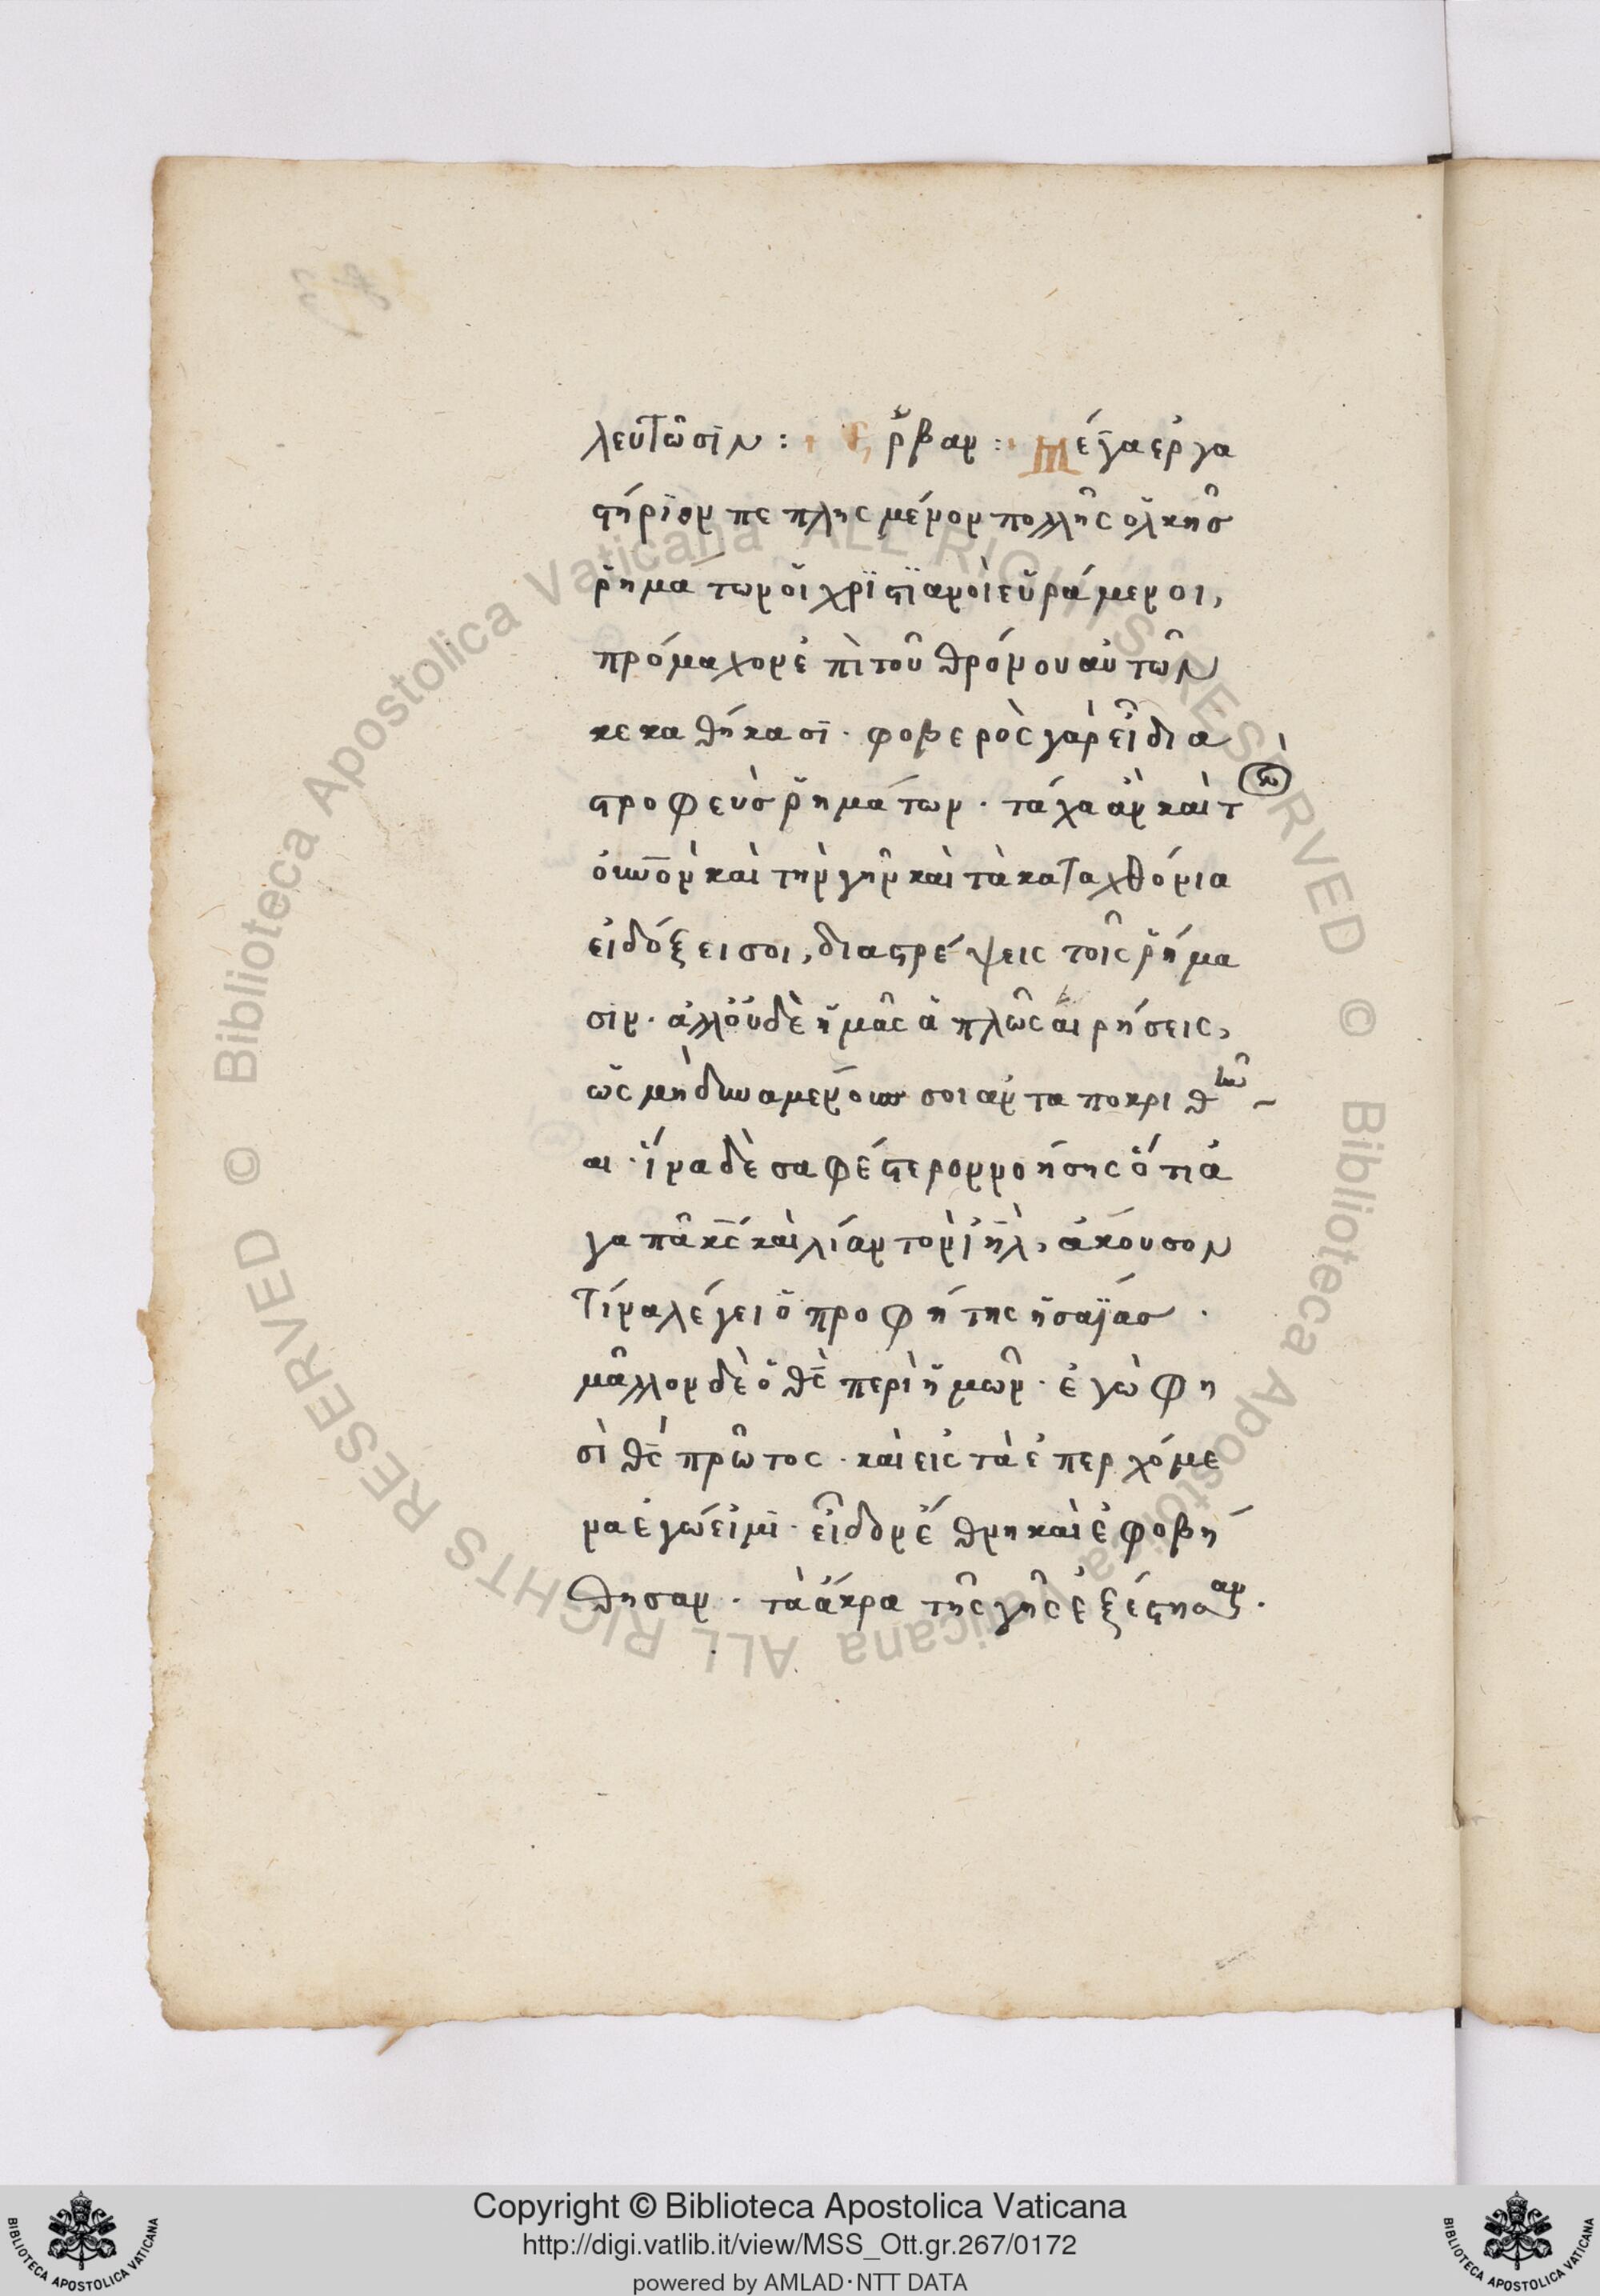 λευτῶσιν : Ἕρβαν : Μέγα ἐργα
στήριον πεπλησμένον πολλῆς ὁλκῆσ
ῥημάτων οἱ χριστιανοὶ εὑράμενοι,
πρόμαχον ἐπὶ τοῦ θρόνου αὐτῶν
κεκαθήκασι · φοβερὸς γὰρ εἶ δια
στροφεὺσ ῥημάτων · τάχα ἂν καὶ τὸν
οὐνὸν καὶ τὴν γῆν καὶ τὰ καταχθόνια
εἰ δόξει σοι, διαστρέψεις τοῖς ῥήμα
σιν · ἀλλ' οὐδὲ ἡμᾶς ἁπλῶς αἱρήσεις,
ὡς μὴ δυναμένους σοι ἀνταποκριθῆν
αι · ἵνα δὲ σαφέστερον νοήσης ὅτι ἀ
γαπᾶ κς καὶ λίαν τὸν ιηλ, ἄκουσον
τίνα λέγει ὁ προφήτης ἡσαΐασ ·
μᾶλλον δὲ ὁ θς περὶ ἡμῶν · ἐγὼ φη
σὶ θς πρῶτος · καὶ εἰς τὰ ἐπερχόμε
να ἐγώ εἰμι · εἶδον ἔθνη καὶ ἐφοβή
θησαν · τὰ ἄκρα τῆς γῆς ἐξέστησαν ·
Copyright © Biblioteca Apostolica Vaticana
http://digi.vatlib.it/view/MSS_Ott.gr.267/0172
powered by AMLAD·NTT DATA
BIBLIOTECA APOSTOLICA VATICANA
BIBLIOTECA APOSTOLICA VATICANA
© Biblioteca Apostolica Vaticana ALL RIGHTS RESERVED © Biblioteca Apostolica Vaticana ALL RIGHTS RESERVED